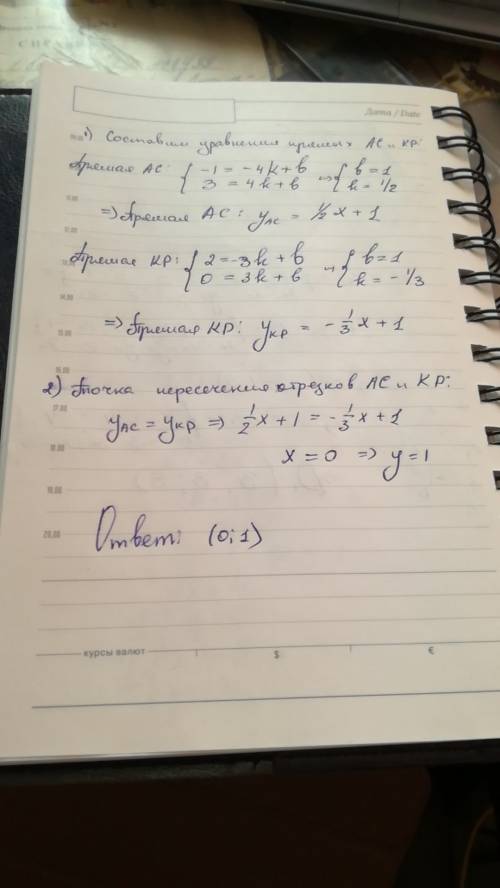 Дата / Date
1) Составим уравнения прямых AC и KP:
Прямая AC: { -1 = -4k + b => { b = 1
3 = 4k + b k = 1/2
=> Прямая AC: y_AC = 1/2 x + 1
Прямая KP: { 2 = -3k + b => { b = 1
0 = 3k + b k = -1/3
14.00
=> Прямая KP: y_KP = -1/3 x + 1
15.00
16.00
2) Точка пересечения отрезков AC и KP:
17.00
y_AC = y_KP => 1/2 x + 1 = -1/3 x + 1
18.00
x = 0 => y = 1
19.00
20.00
Ответ: (0; 1)
курсы валют $ €